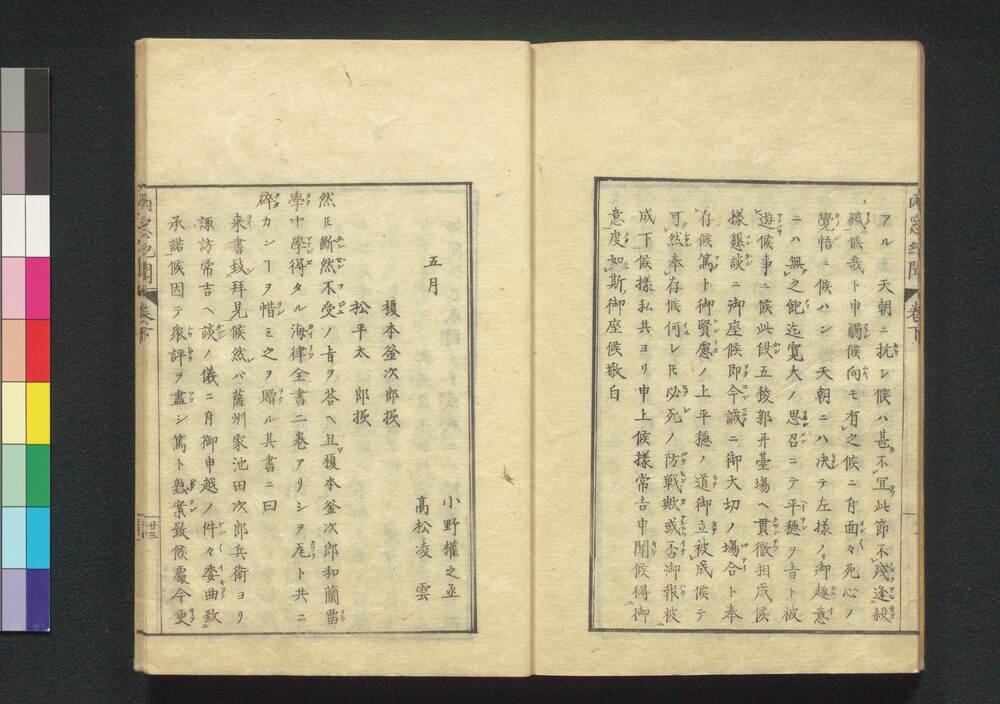 アル 天朝ニ抗シ候ハ甚不宜此節不残逢殺
戮候哉ト申觸候向モ有之候ニ付面々死心ノ
覺悟ニ候ハン 天朝ニハ决テ左様ノ御趣意
ニハ無之飽迄寛大ノ思召ニテ平穏ヲ旨ト被
遊候事ニ候此段五稜郭并臺場ヘ貫徹相成候
様懇談ニ御座候即今誠ニ御大切ノ場合ト奉
存候篤ト御賢慮ノ上平穏ノ道御立被成候テ
可然奉存候何レ𪜈必死ノ防戦歟或否御報被
成下候様私共ヨリ申上候様常吉申聞候得御
意度如斯御座候敬白
雨窓紀聞 巻下
五月
小野權之丞
高松凌雲
榎本釜次郎様
松平太郎様
然𪜈断然不受ノ旨ヲ荅ヘ且榎本釜次郎和蘭畱
學中學得タル海律全書二巻アリシヲ尾ト共ニ
碎カンヿヲ惜ミ之ヲ贈ル其書ニ曰
来書致拜見候然バ薩州家池田次郎兵衛ヨリ
諏訪常吉ヘ談ノ儀ニ付御申越ノ件々委曲致
承諾候因テ衆評ヲ盡シ篤ト熟案致候處今更
雨窓紀聞 巻下 廿三